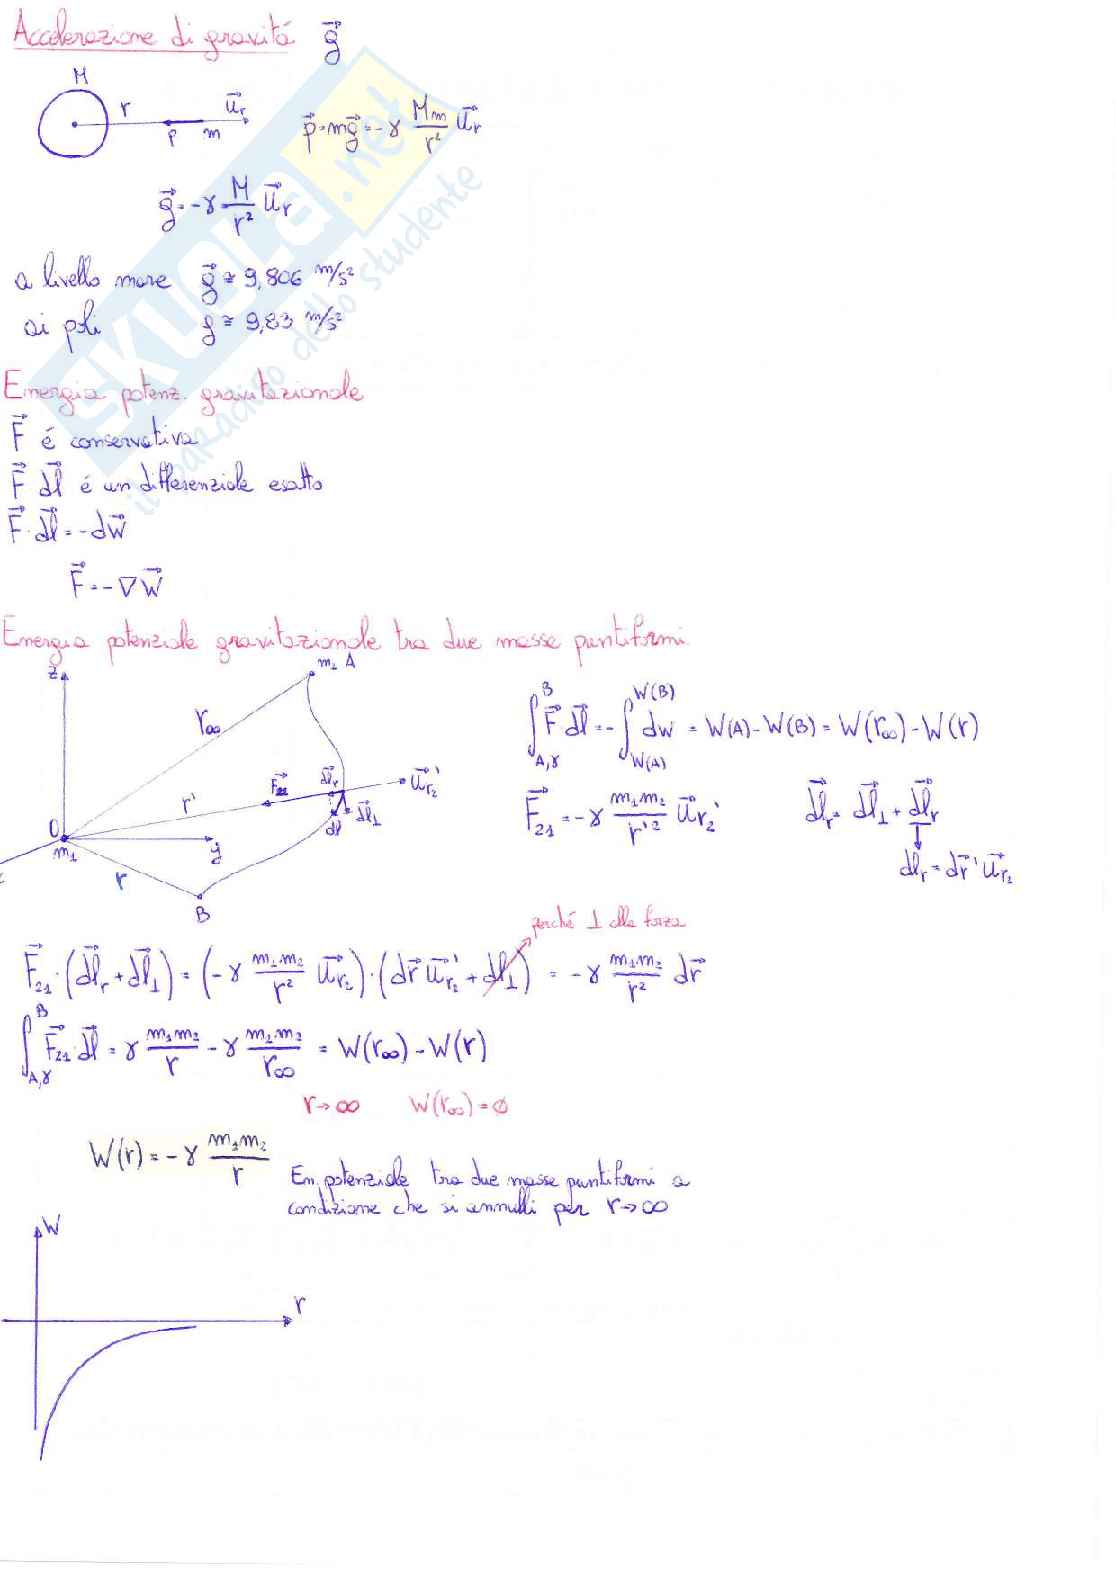 Accelerazione di gravitá g⃗
M
r u⃗r
P m
p⃗=mg⃗=-γ Mm/r² u⃗r
g⃗=-γ M/r² u⃗r
a livello mare g⃗≅9,806 m/s²
ai poli g≅9,83 m/s²
SKUOLA.net
il paradiso dello studente
Energia potenz. gravitazionale
F⃗ é conservativa
F⃗ dl⃗ é un differenziale esatto
F⃗·dl⃗=-dW⃗
F⃗=-∇W⃗
Energia potenziale gravitazionale tra due masse puntiformi.
z m2 A
r∞
F⃗21 dl⃗r u⃗r2'
r' dl⃗ dl⃗⊥
O m1 y
r
B
∫A,γ^B F⃗ dl⃗=-∫W(A)^W(B) dW = W(A)-W(B)=W(r∞)-W(r)
F⃗21=-γ m1m2/r'² u⃗r2'
dl⃗r= dl⃗⊥+dl⃗r
dlr=dr⃗'u⃗r2
perché ⊥ alla forza
F⃗21·(dl⃗r+dl⃗⊥)=(-γ m1m2/r² u⃗r2)·(dr⃗ u⃗r2'+dl⊥) = -γ m1m2/r² dr⃗
∫A,γ^B F⃗21·dl⃗=γ m1m2/r -γ m1m2/r∞ = W(r∞)-W(r)
r→∞ W(r∞)=0
W(r)=-γ m1m2/r
En. potenziale tra due masse puntiformi a
condizione che si annulli per r→∞
W
r